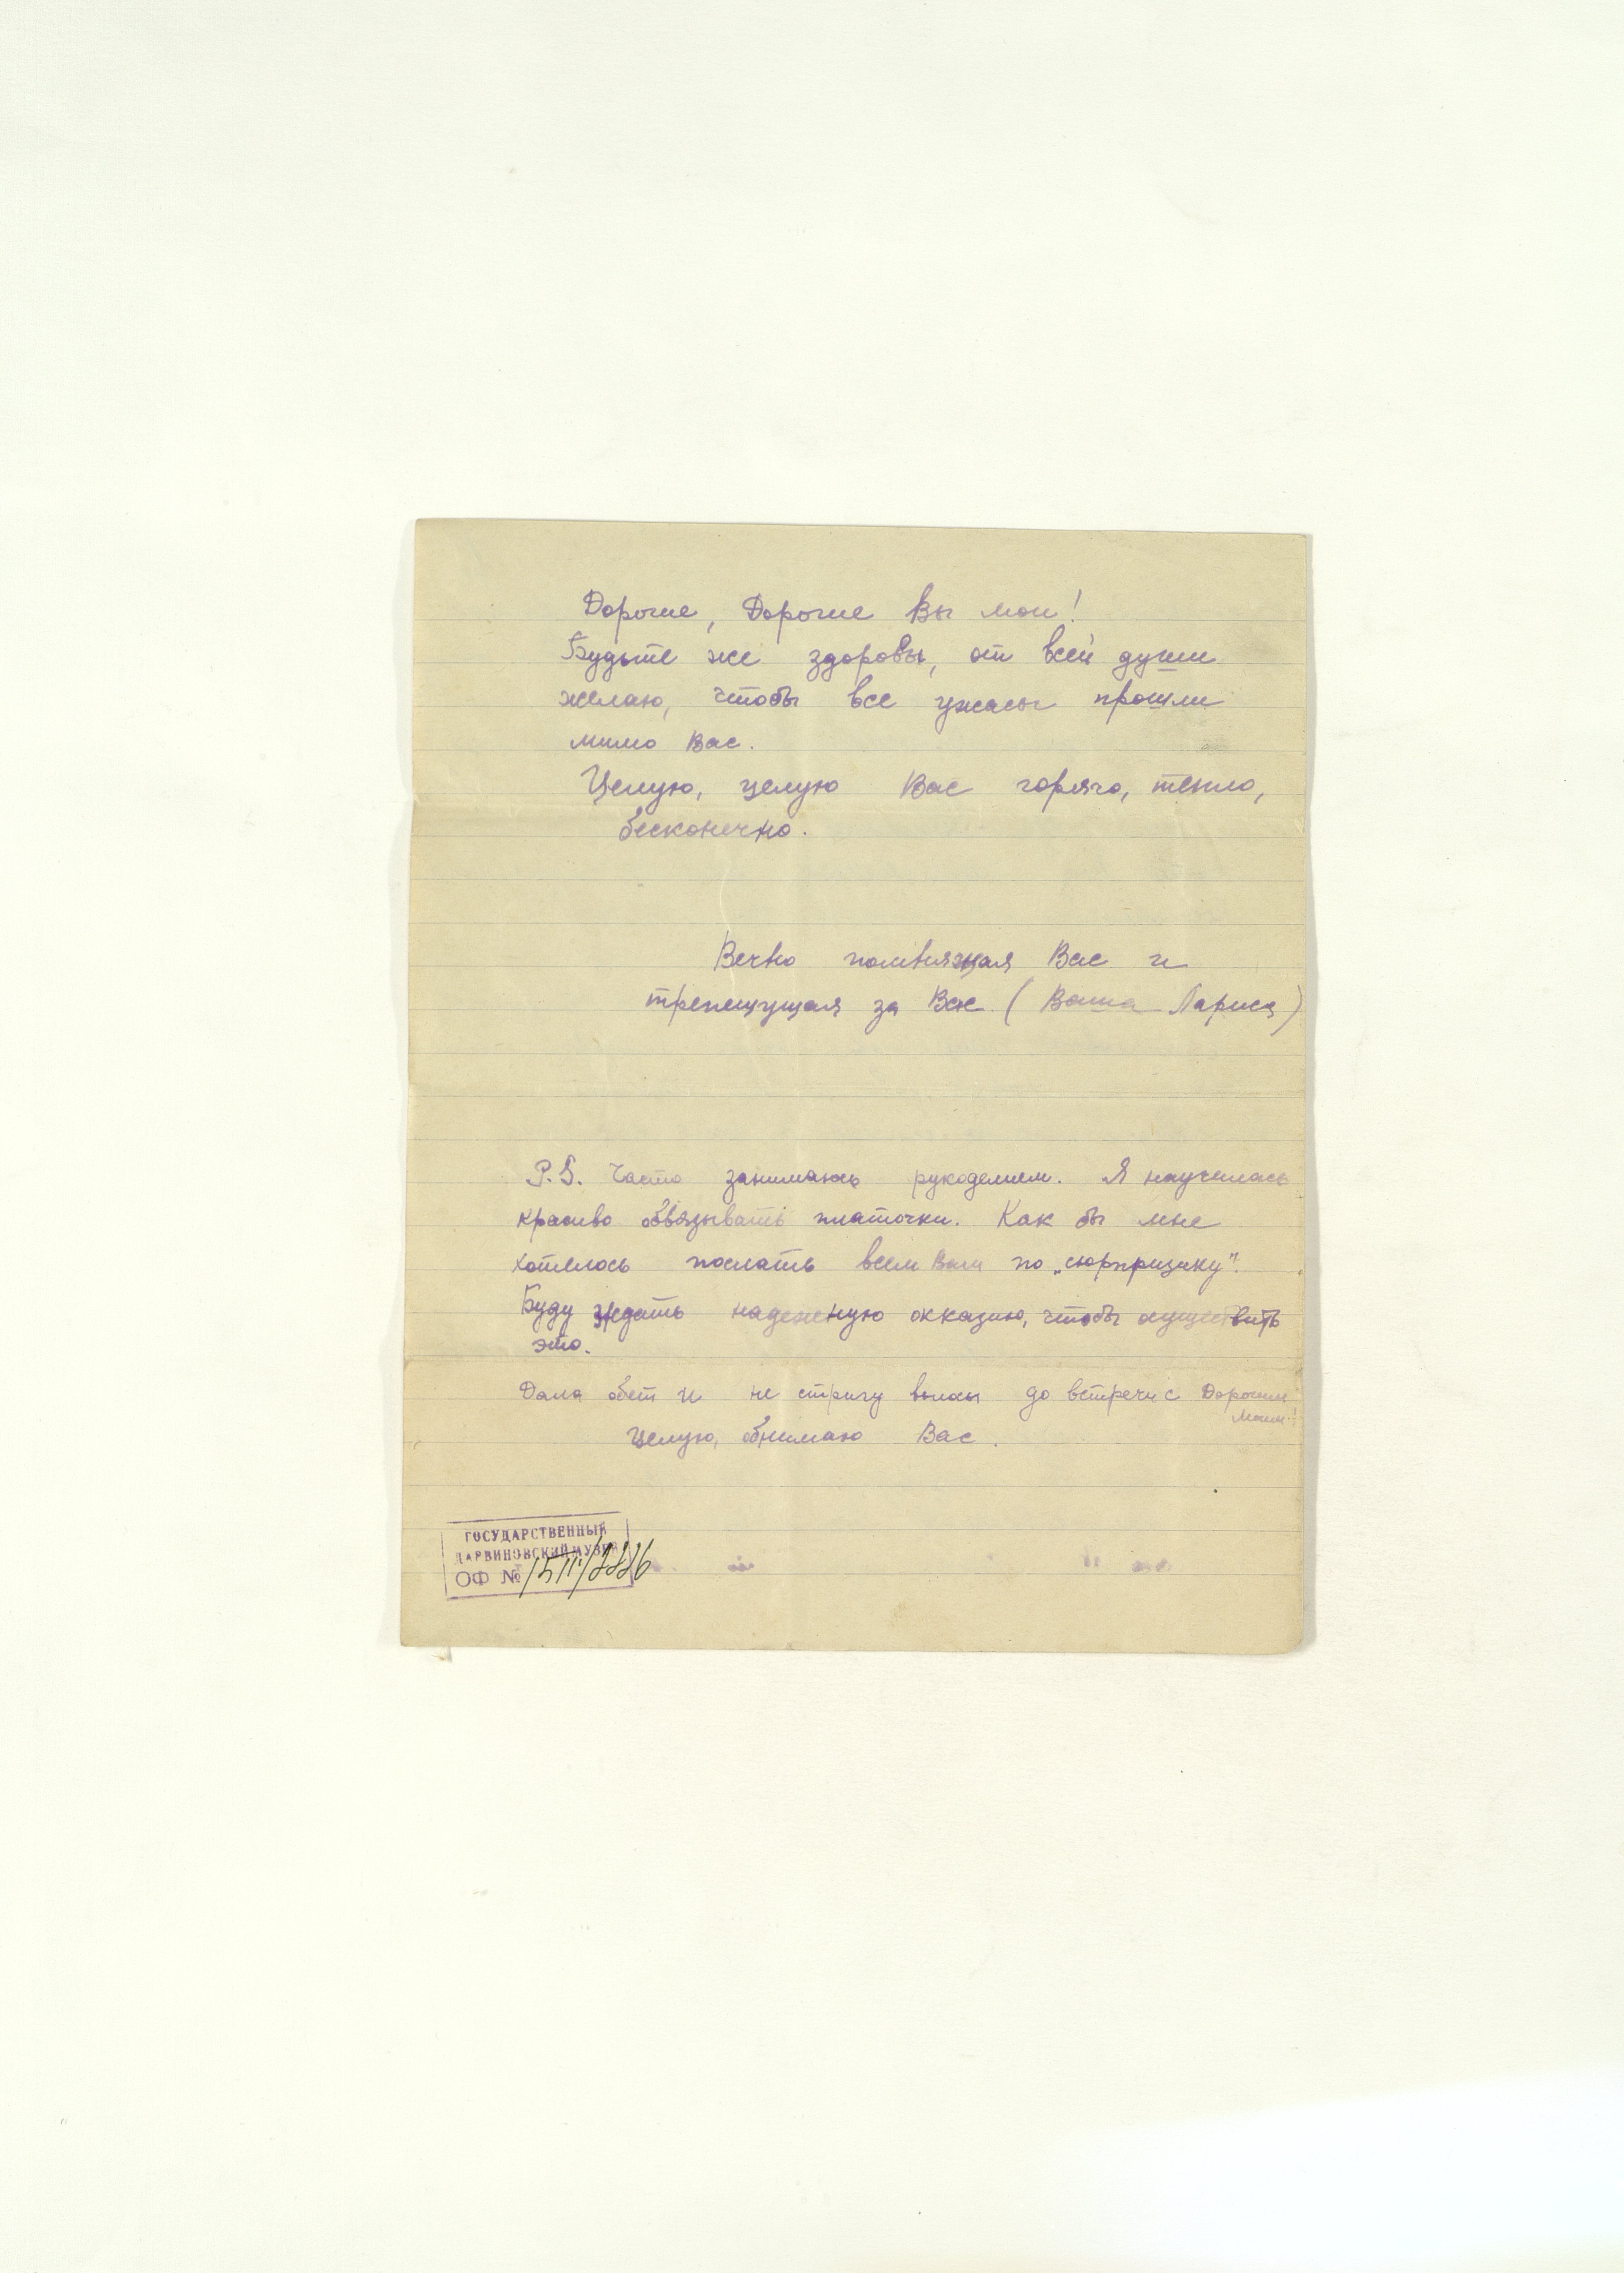 Дорогие, Дорогие Вы мои!
Будьте же здоровы, от всей души
желаю, чтобы все ужасы прошли
мимо Вас.
Целую, целую Вас горячо, тепло,
бесконечно.
Вечно помнящая Вас и
трепещущая за Вас (Ваша Лариса)
P.S. Часто занимаюсь рукоделием. Я научилась
красиво обвязывать платочки. Как бы мне
хотелось послать всем Вам по „сюрпризику".
Буду ждать надежную окказию, чтобы осуществить
это.
Дала обет и не стригу волосы до встречи с Дорогими
Моими!
Целую, обнимаю Вас.
ГОСУДАРСТВЕННЫЙ
ДАРВИНОВСКИЙ МУЗЕЙ
ОФ №